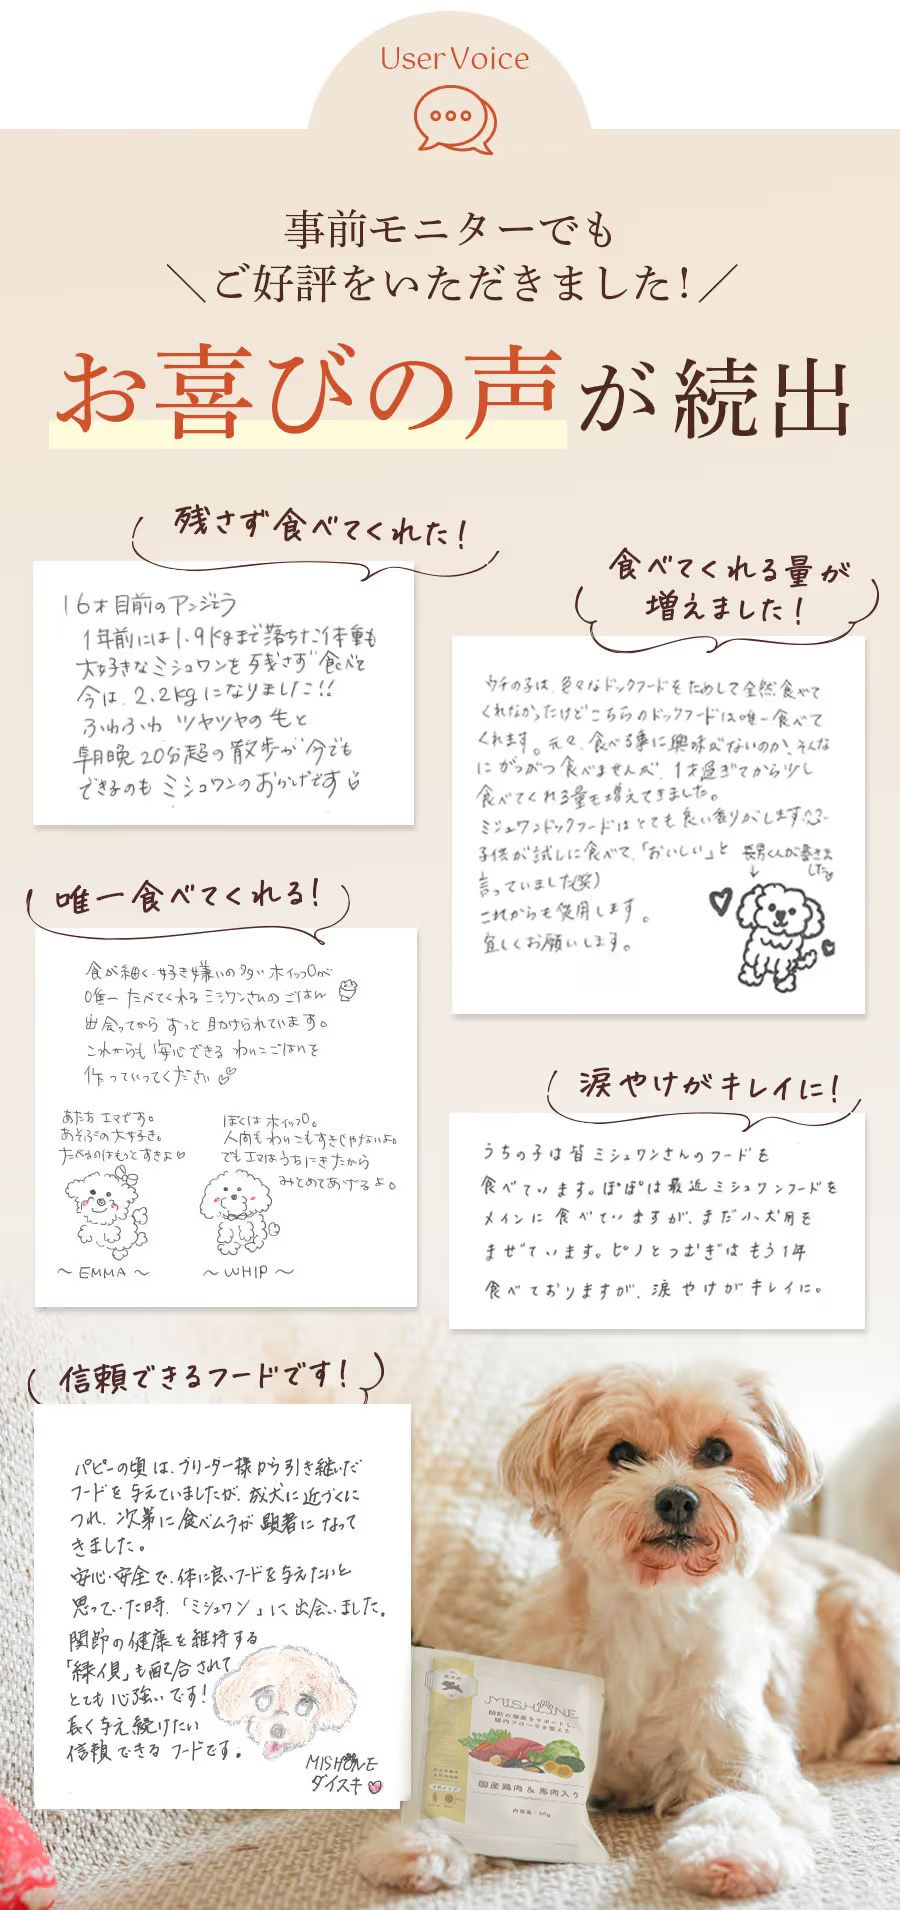 User Voice
事前モニターでも
＼ご好評をいただきました!／
お喜びの声が続出
残さず食べてくれた!
16才目前のアンジェラ
1年前には1.9kgまで落ちた体重も
大好きなミシュワンを残さず食べて
今は、2.2kgになりました!!
ふわふわ ツヤツヤの毛と
朝晩20分超の散歩が今でも
できるのもミシュワンのおかげです
食べてくれる量が
増えました!
ウチの子は、色々なドックフードをためして全然食べて
くれなかったけどこちらのドックフードは唯一食べて
くれます。元々、食べる事に興味がないのか、そんな
にがつがつ食べませんが、1才過ぎてから少し
食べてくれる量も増えてきました。
ミシュワンドックフードはとても良い香りがします
子供が試しに食べて、「おいしい」と
言っていました(笑)
これからも使用します。
宜しくお願いします。
長男くんが書きま
した
唯一食べてくれる!
食が細く、好き嫌いの多いホイップが
唯一たべてくれるミシュワンさんのごはん
出会ってからずっと助けられています。
これからも安心できるわんこごはんを
作っていってください
あたち エマです。
あそぶの大好き。
たべるのはもっとすきよ
～EMMA～
ぼくはホイップ。
人間もわんこもすきじゃないよ。
でもエマはうちにきたから
みとめてあげるよ。
～WHIP～
涙やけがキレイに!
うちの子は皆ミシュワンさんのフードを
食べています。ぽぽは最近ミシュワンフードを
メインに食べていますが、まだ小犬用を
まぜています。ピノとつむぎはもう1年
食べておりますが、涙やけがキレイに。
信頼できるフードです!
パピーの頃は、ブリーダー様から引き継いだ
フードを与えていましたが、成犬に近づくに
つれ、次第に食べムラが顕著になって
きました。
安心・安全で、体に良いフードを与えたいと
思っていた時、「ミシュワン」に出会いました。
関節の健康を維持する
「緑イ貝」も配合されて
とても心強いです!
長く与え続けたい
信頼できるフードです。
MISHONE
ダイスキ
成犬用
MISHONE
関節の健康をサポートし、
腸内フローラを整える
国産鶏肉&馬肉入り
内容量:50g